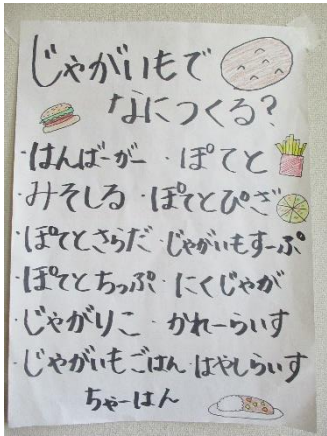 じゃがいもで
なにつくる?
・はんばーがー ・ぽてと
・みそしる ・ぽてとぴざ
・ぽてとさらだ ・じゃがいもすーぷ
・ぽてとちっぷ ・にくじゃが
・じゃがりこ ・かれーらいす
・じゃがいもごはん ・はやしらいす
ちゃーはん